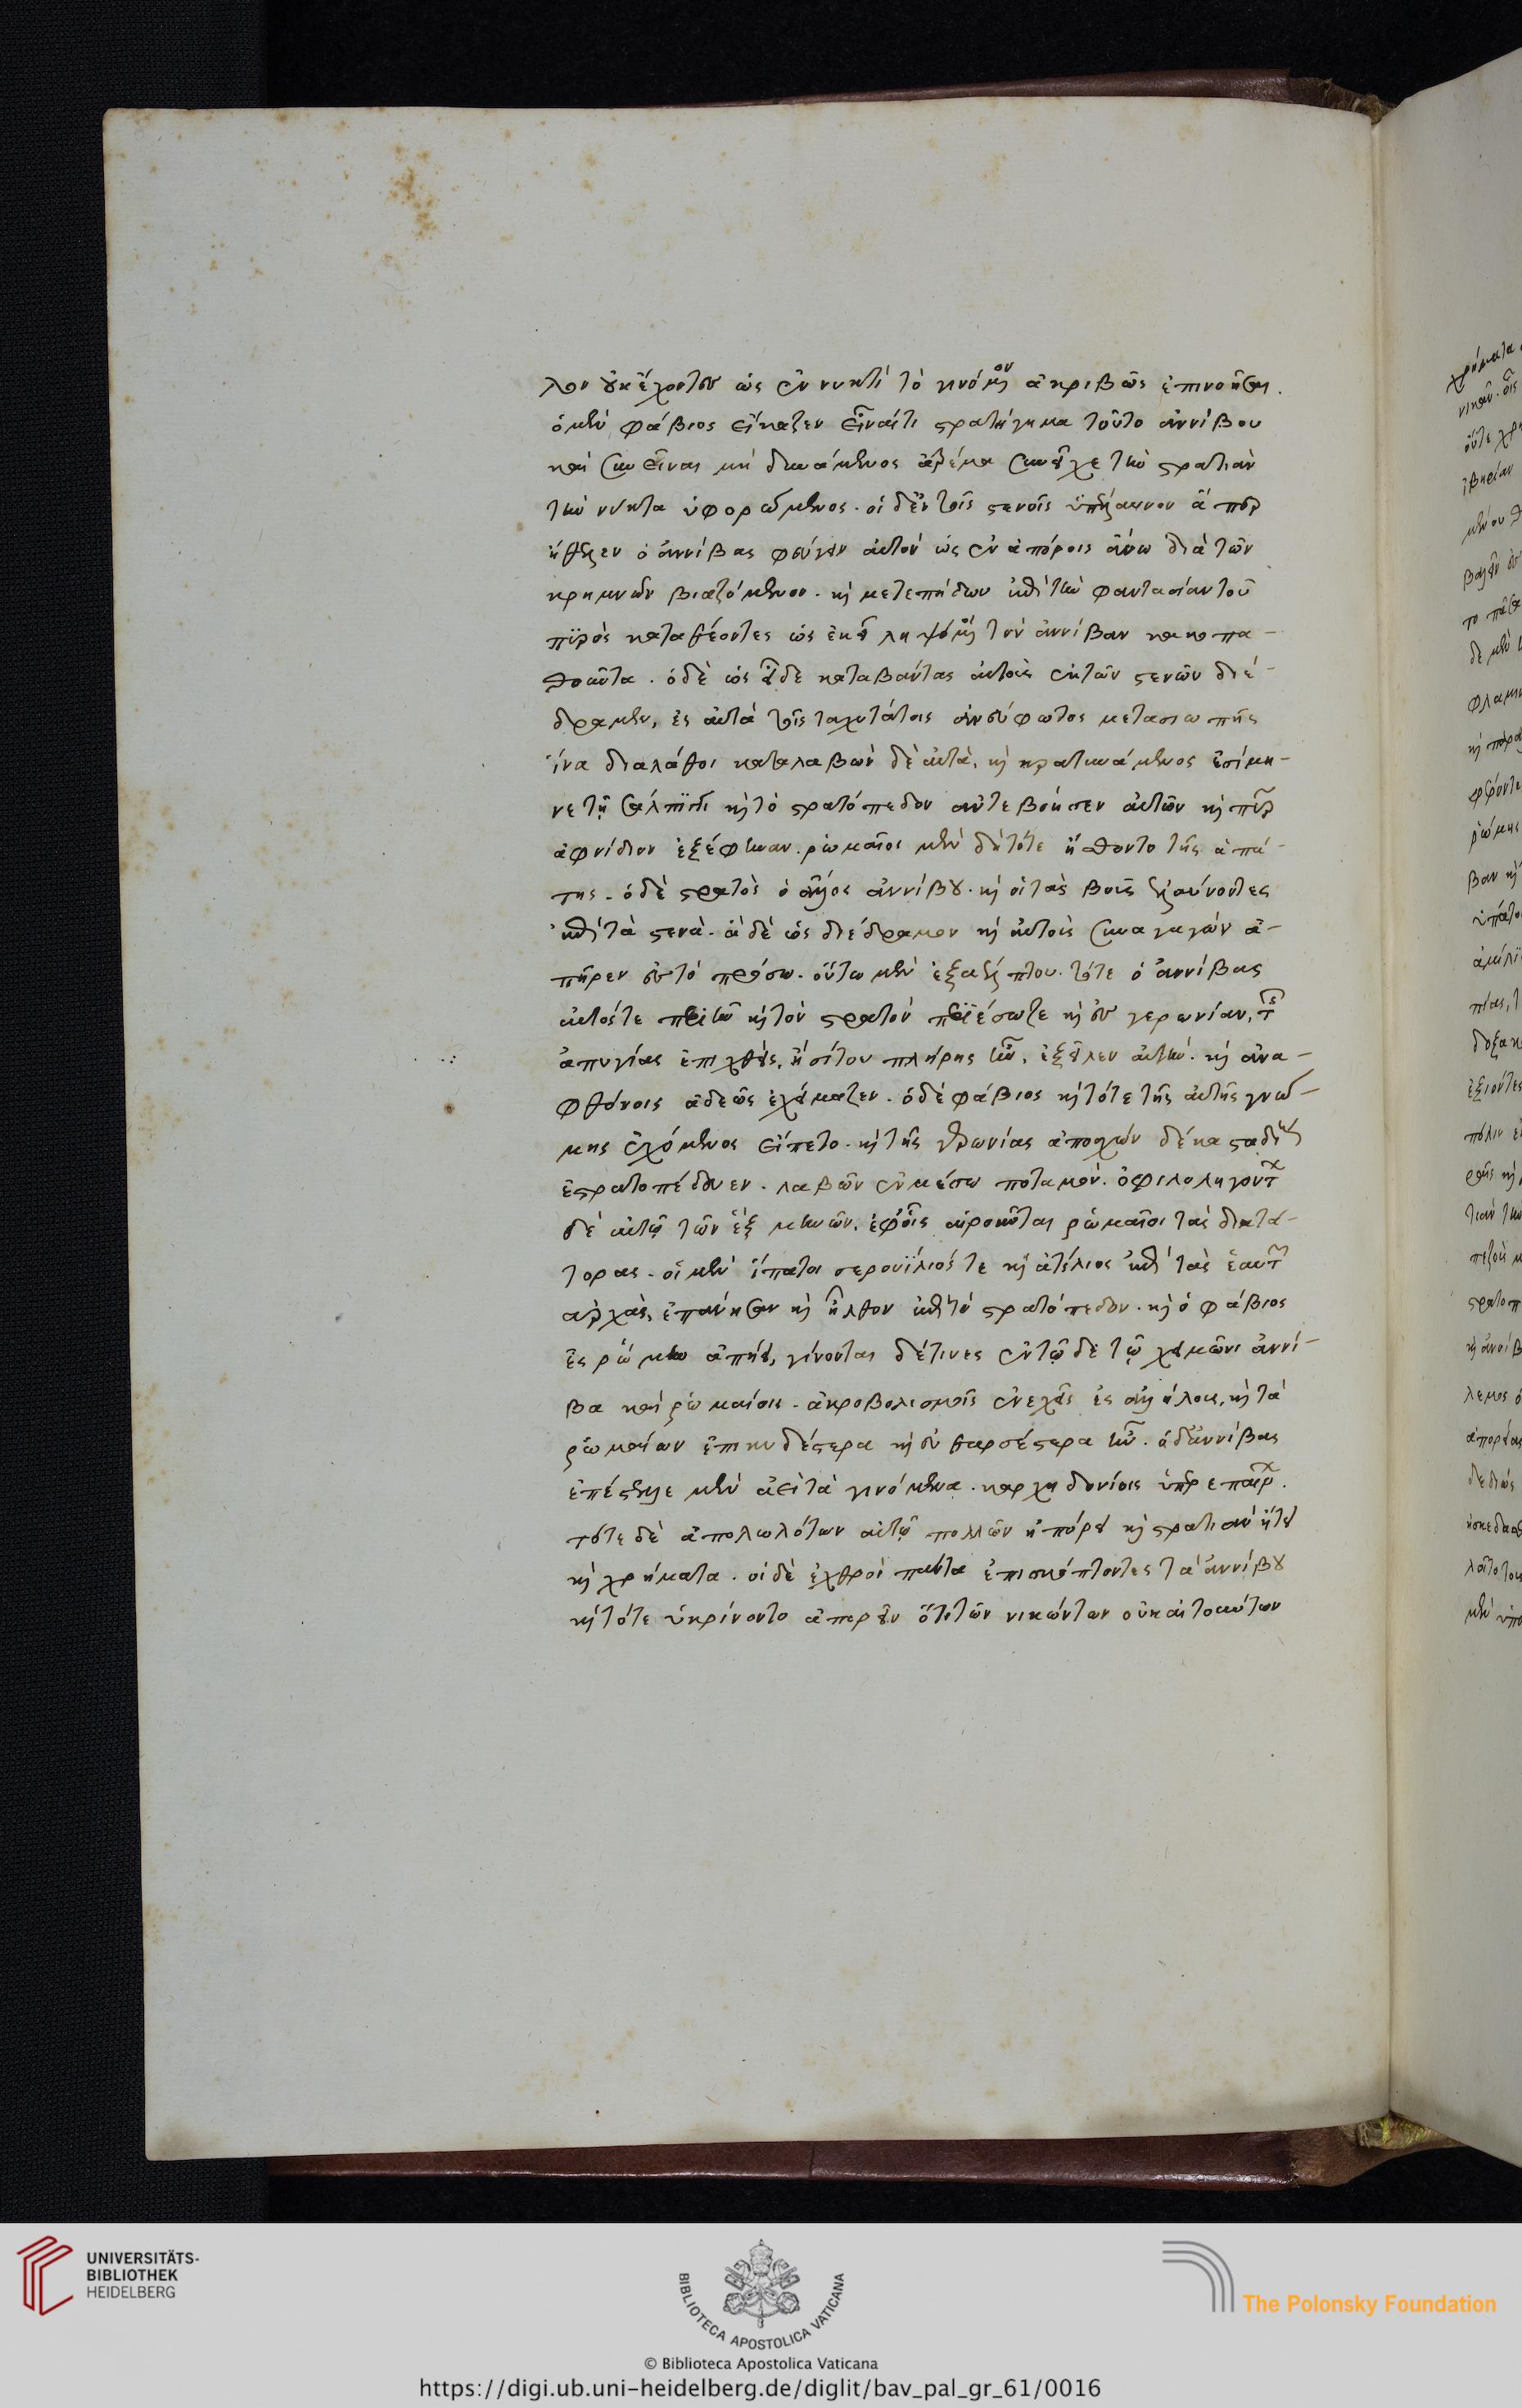 λον οὐκ ἔχοντες ὡς ἐν νυκτὶ τὸ γινόμενον ἀκριβῶς ἐπινοῆσαι.
ὁ μὲν φάβιος εἴκαζεν εἶναί τι στρατήγημα τοῦτο ἀννίβου
καὶ συνεῖναι μὴ δυνάμενος ἀτρέμα συνεῖχε τὴν στρατιὰν
τὴν νύκτα ὑφορώμενος. οἱ δ' ἐν τοῖς στενοῖς ὑπέλαβον ἅπερ
ἤθελεν ὁ ἀννίβας φεύγειν αὐτὸν ὡς ἐν ἀπόροις ἄνω διὰ τῶν
κρημνῶν βιαζόμενον. καὶ μετεπήδων ἐπὶ τὴν φαντασίαν τοῦ
πυρὸς καταθέοντες ὡς ἐκεῖ ληψόμενοι τὸν ἀννίβαν κακοπα-
θοῦντα. ὁ δὲ ὡς εἶδε καταβάντας αὐτοὺς ἐκ τῶν στενῶν διέ-
δραμεν, ἐς αὐτὰ τοῖς ταχυτάτοις ἄνευ φωτὸς μετὰ σιωπῆς
ἵνα διαλάθοι καταλαβὼν δὲ αὐτὰ, καὶ κρατυνάμενος ἐσήμη-
νε τῇ σάλπιγγι καὶ τὸ στρατόπεδον ἀντεβόησεν αὐτῶν καὶ πῦρ
αἰφνίδιον ἐξέφηναν. ῥωμαῖοι μὲν δὴ τότε ᾔσθοντο τῆς ἀπά-
της. ὁ δὲ στρατὸς ὁ ἄλλος ἀννίβου. καὶ οἱ τὰς βοῦς ἐλαύνοντες
ἐπὶ τὰ στενὰ. ἀδεῶς διέδραμον καὶ αὐτοὺς συναγαγὼν ἀ-
πῆρεν ἐς τὸ πρόσω. οὕτω μὲν ἐξ ἀέλπτου. τότε ὁ ἀννίβας
αὐτός τε περιῆν καὶ τὸν στρατὸν περιέσωζε καὶ ἐς γερωνίαν, τῆς
ἰαπυγίας ἐπειχθεὶς, ἣ σίτου πλήρης ἦν, ἐξεῖλεν αὐτὴν. καὶ ἐν ἀ-
φθόνοις ἀδεῶς ἐχείμαζεν. ὁ δὲ φάβιος καὶ τότε τῆς αὐτῆς γνώ-
μης ἐχόμενος εἵπετο. καὶ τῆς γερωνίας ἀποσχὼν δέκα σταδίους
ἐστρατοπέδευεν. λαβὼν ἐν μέσῳ ποταμὸν.
δὲ αὐτῷ τῶν ἓξ μηνῶν, ἐφ' οἷς αἱροῦνται ῥωμαῖοι τοὺς δικτά-
τορας. οἱ μὲν ὕπατοι σερουίλιός τε καὶ ἀτίλιος ἐπὶ τὰς ἑαυτῶν
ἀρχὰς, ἐπανῄεσαν καὶ ἦλθον ἐπὶ τὸ στρατόπεδον. καὶ ὁ φάβιος
ἐς ῥώμην ἀπῄει, γίνονται δέ τινες ἐν τῷδε τῷ χειμῶνι ἀννί-
βα καὶ ῥωμαίοις. ἀκροβολισμοὶ συνεχεῖς ἐς ἀλλήλους, καὶ τὰ
ῥωμαίων ἐπικυδέστερα καὶ εὐθαρσέστερα ἦν. ὁ δ' ἀννίβας
ἐπέστελλε μὲν ἀεὶ τὰ γινόμενα. καρχηδονίοις ὑπερεπαίρων.
τότε δὲ ἀπολωλότων αὐτῷ πολλῶν ἠπόρει καὶ στρατιὰν ᾔτει
καὶ χρήματα. οἱ δὲ ἐχθροὶ πάντα ἐπισκώπτοντες τὰ ἀννίβου
καὶ τότε ὑπεκρίνοντο ἀπορεῖν ὅτι τῶν νικώντων οὐκ αἰτούντων
UNIVERSITÄTS-
BIBLIOTHEK
HEIDELBERG
BIBLIOTECA APOSTOLICA VATICANA
The Polonsky Foundation
© Biblioteca Apostolica Vaticana
https://digi.ub.uni-heidelberg.de/diglit/bav_pal_gr_61/0016